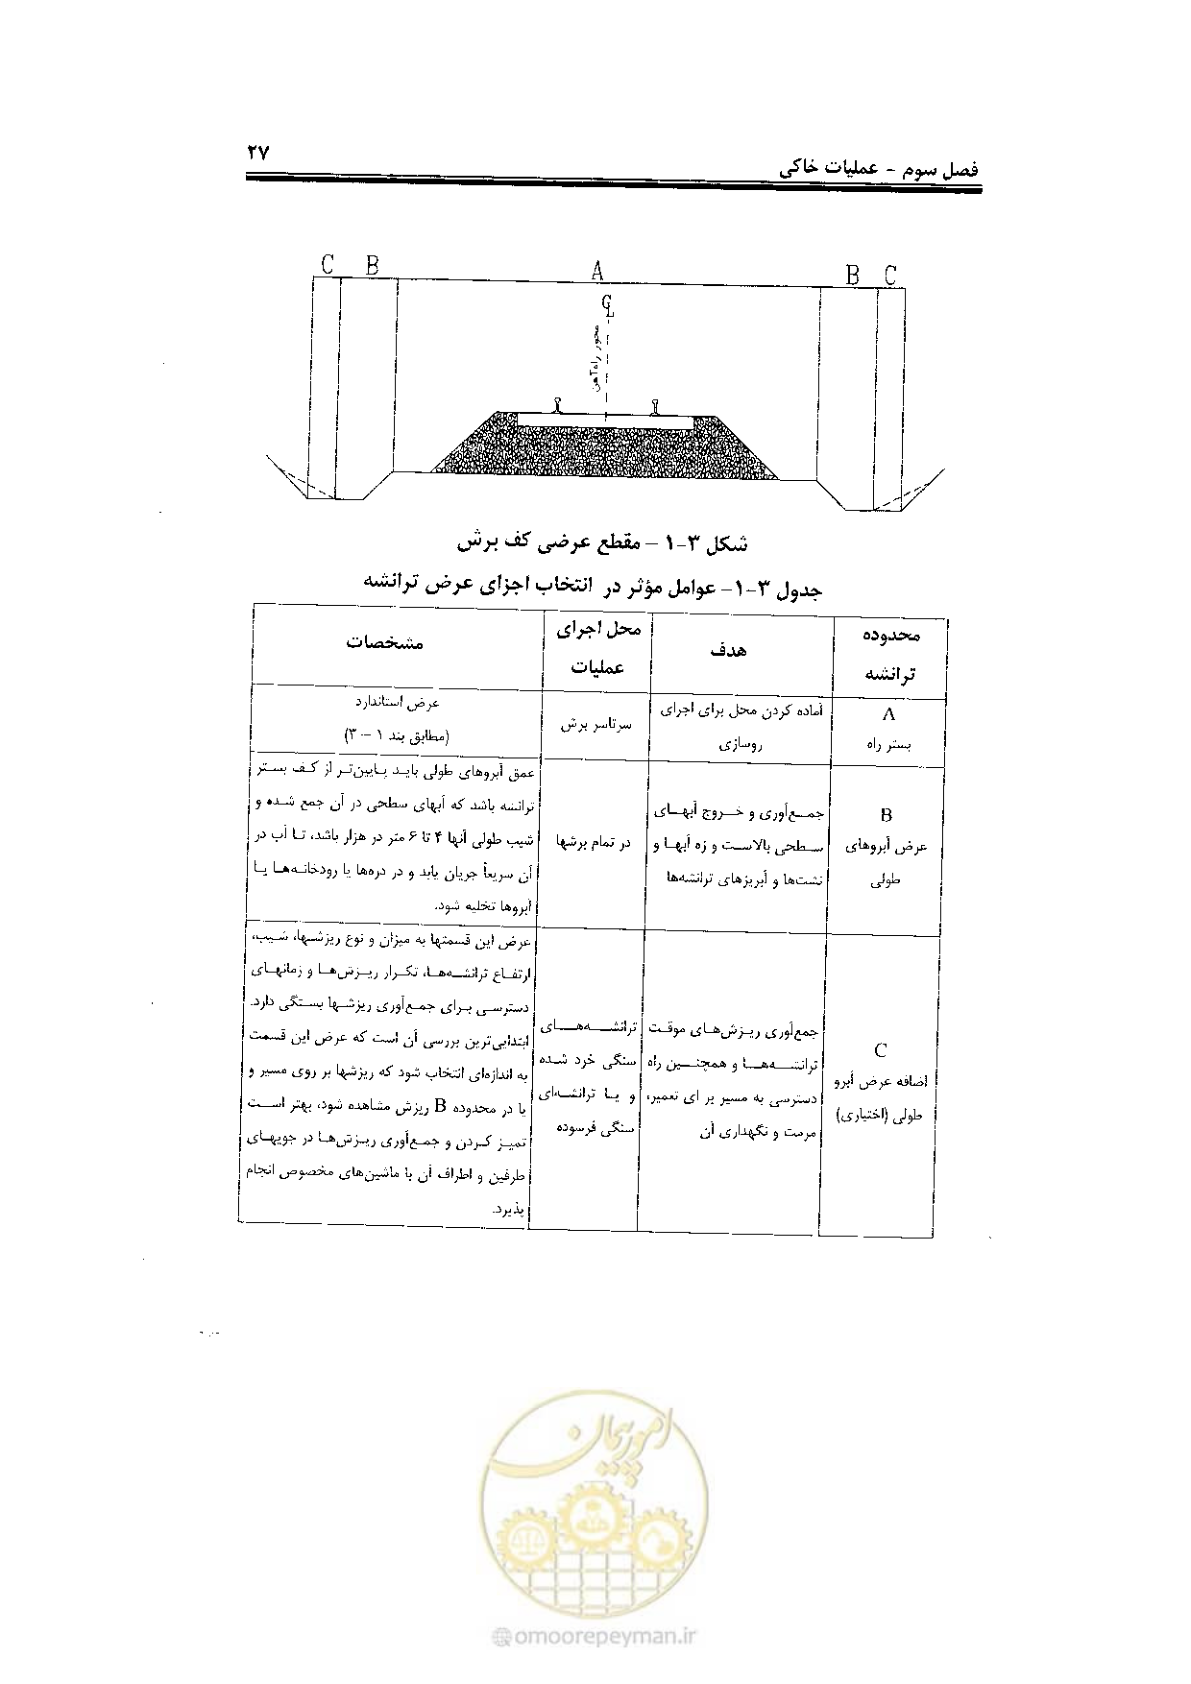 فصل سوم - عملیات خاکی
۲۷
C B A B C
CL
محور راه‌آهن
شکل ۳-۱ – مقطع عرضی کف برش
جدول ۳-۱- عوامل مؤثر در انتخاب اجزای عرض ترانشه
محدوده
ترانشه
هدف
محل اجرای
عملیات
مشخصات
A
بستر راه
آماده کردن محل برای اجرای
روسازی
سرتاسر برش
عرض استاندارد
(مطابق بند ۱ –۳)
B
عرض آبروهای
طولی
جمع‌آوری و خروج آبهای
سطحی بالاست و زه آبها و
نشت‌ها و آبریزهای ترانشه‌ها
در تمام برشها
عمق آبروهای طولی باید پایین‌تر از کف بستر
ترانشه باشد که آبهای سطحی در آن جمع شده و
شیب طولی آنها ۴ تا ۶ متر در هزار باشد، تا آب در
آن سریعاً جریان یابد و در دره‌ها یا رودخانه‌ها یا
آبروها تخلیه شود.
C
اضافه عرض آبرو
طولی (اختیاری)
جمع‌آوری ریزش‌های موقت
ترانشه‌ها و همچنین راه
دسترسی به مسیر بر ای تعمیر،
مرمت و نگهداری آن
ترانشه‌های
سنگی خرد شده
و یا ترانشه‌ای
سنگی فرسوده
عرض این قسمتها به میزان و نوع ریزشها، شیب،
ارتفاع ترانشه‌ها، تکرار ریزش‌ها و زمانهای
دسترسی برای جمع‌آوری ریزشها بستگی دارد.
ابتدایی‌ترین بررسی آن است که عرض این قسمت
به اندازه‌ای انتخاب شود که ریزشها بر روی مسیر و
یا در محدوده B ریزش مشاهده شود، بهتر است
تمیز کردن و جمع‌آوری ریزش‌ها در جویهای
طرفین و اطراف آن با ماشین‌های مخصوص انجام
پذیرد.
امور پیمان
@omoorepeyman.ir